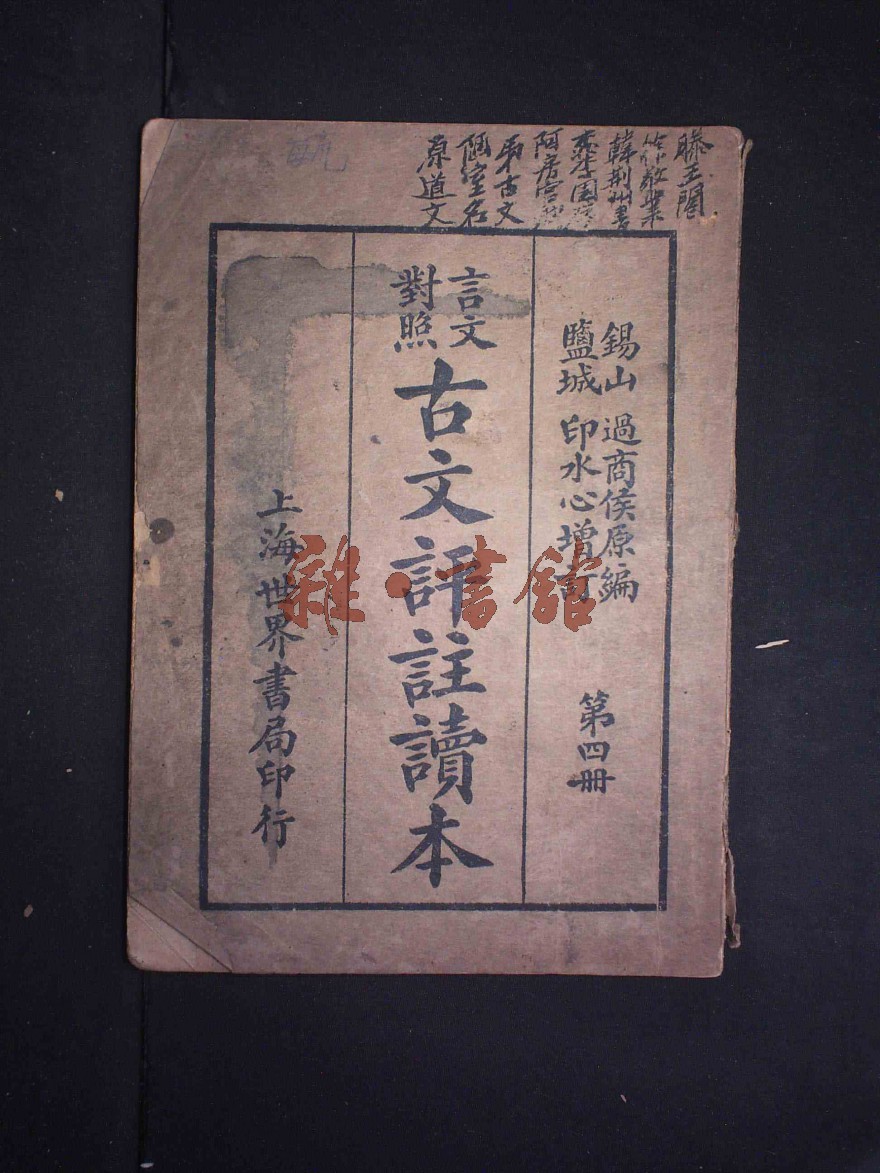 滕王閣
作敬業
韓荆州書
春李園序
阿房宮
弔古文
陋室名
原道文
錫山 過商侯原編
鹽城 印水心增訂
第四册
言文
對照
古文評註讀本
上海世界書局印行
雜·書館